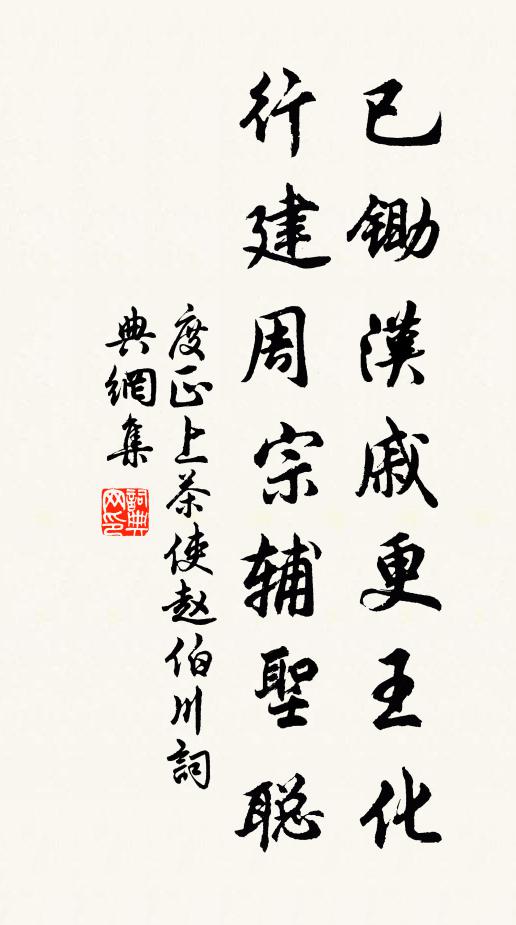 已锄漢戚更王化
行建周宗辅聖聪
度正上茶使赵伯川詞
典網集
詞典
网印